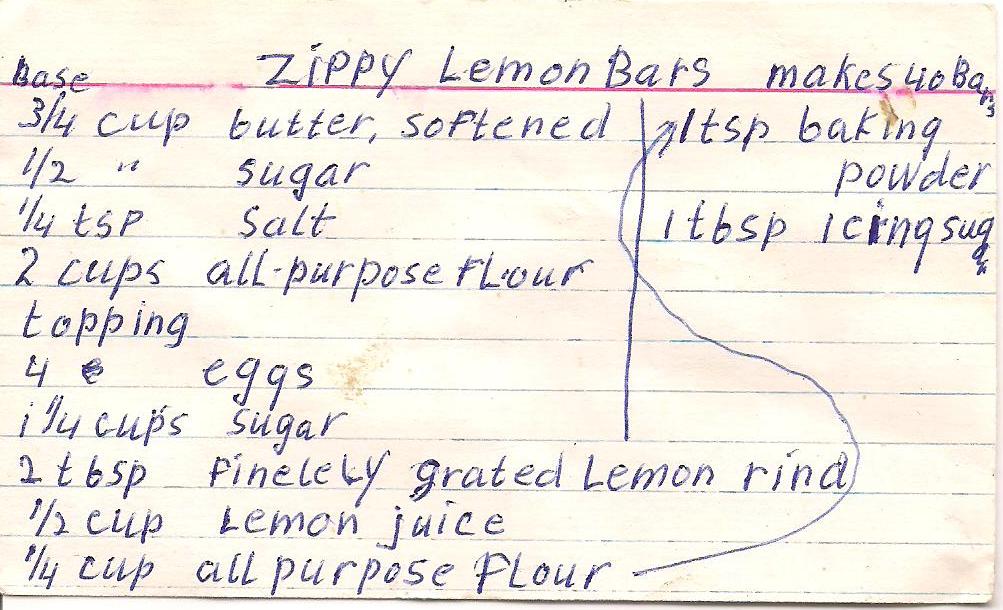 Base Zippy Lemon Bars makes 40 Bars
3/4 cup butter, softened
1/2 " sugar
1/4 tsp salt
2 cups all-purpose flour
topping
4 eggs
1 1/4 cups sugar
2 tbsp finelely grated Lemon rind
1/2 cup Lemon juice
1/4 cup all purpose flour
1 tsp baking
powder
1 tbsp icing sugar